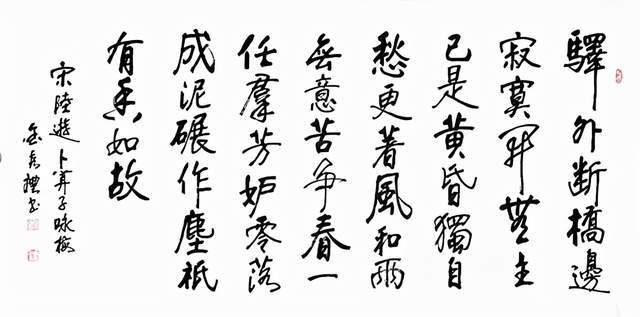 驛外断橋邊
寂寞開無主
已是黄昏獨自
愁更著風和雨
無意苦争春一
任羣芳妒零落
成泥碾作塵祇
有香如故
宋陸遊卜算子咏梅